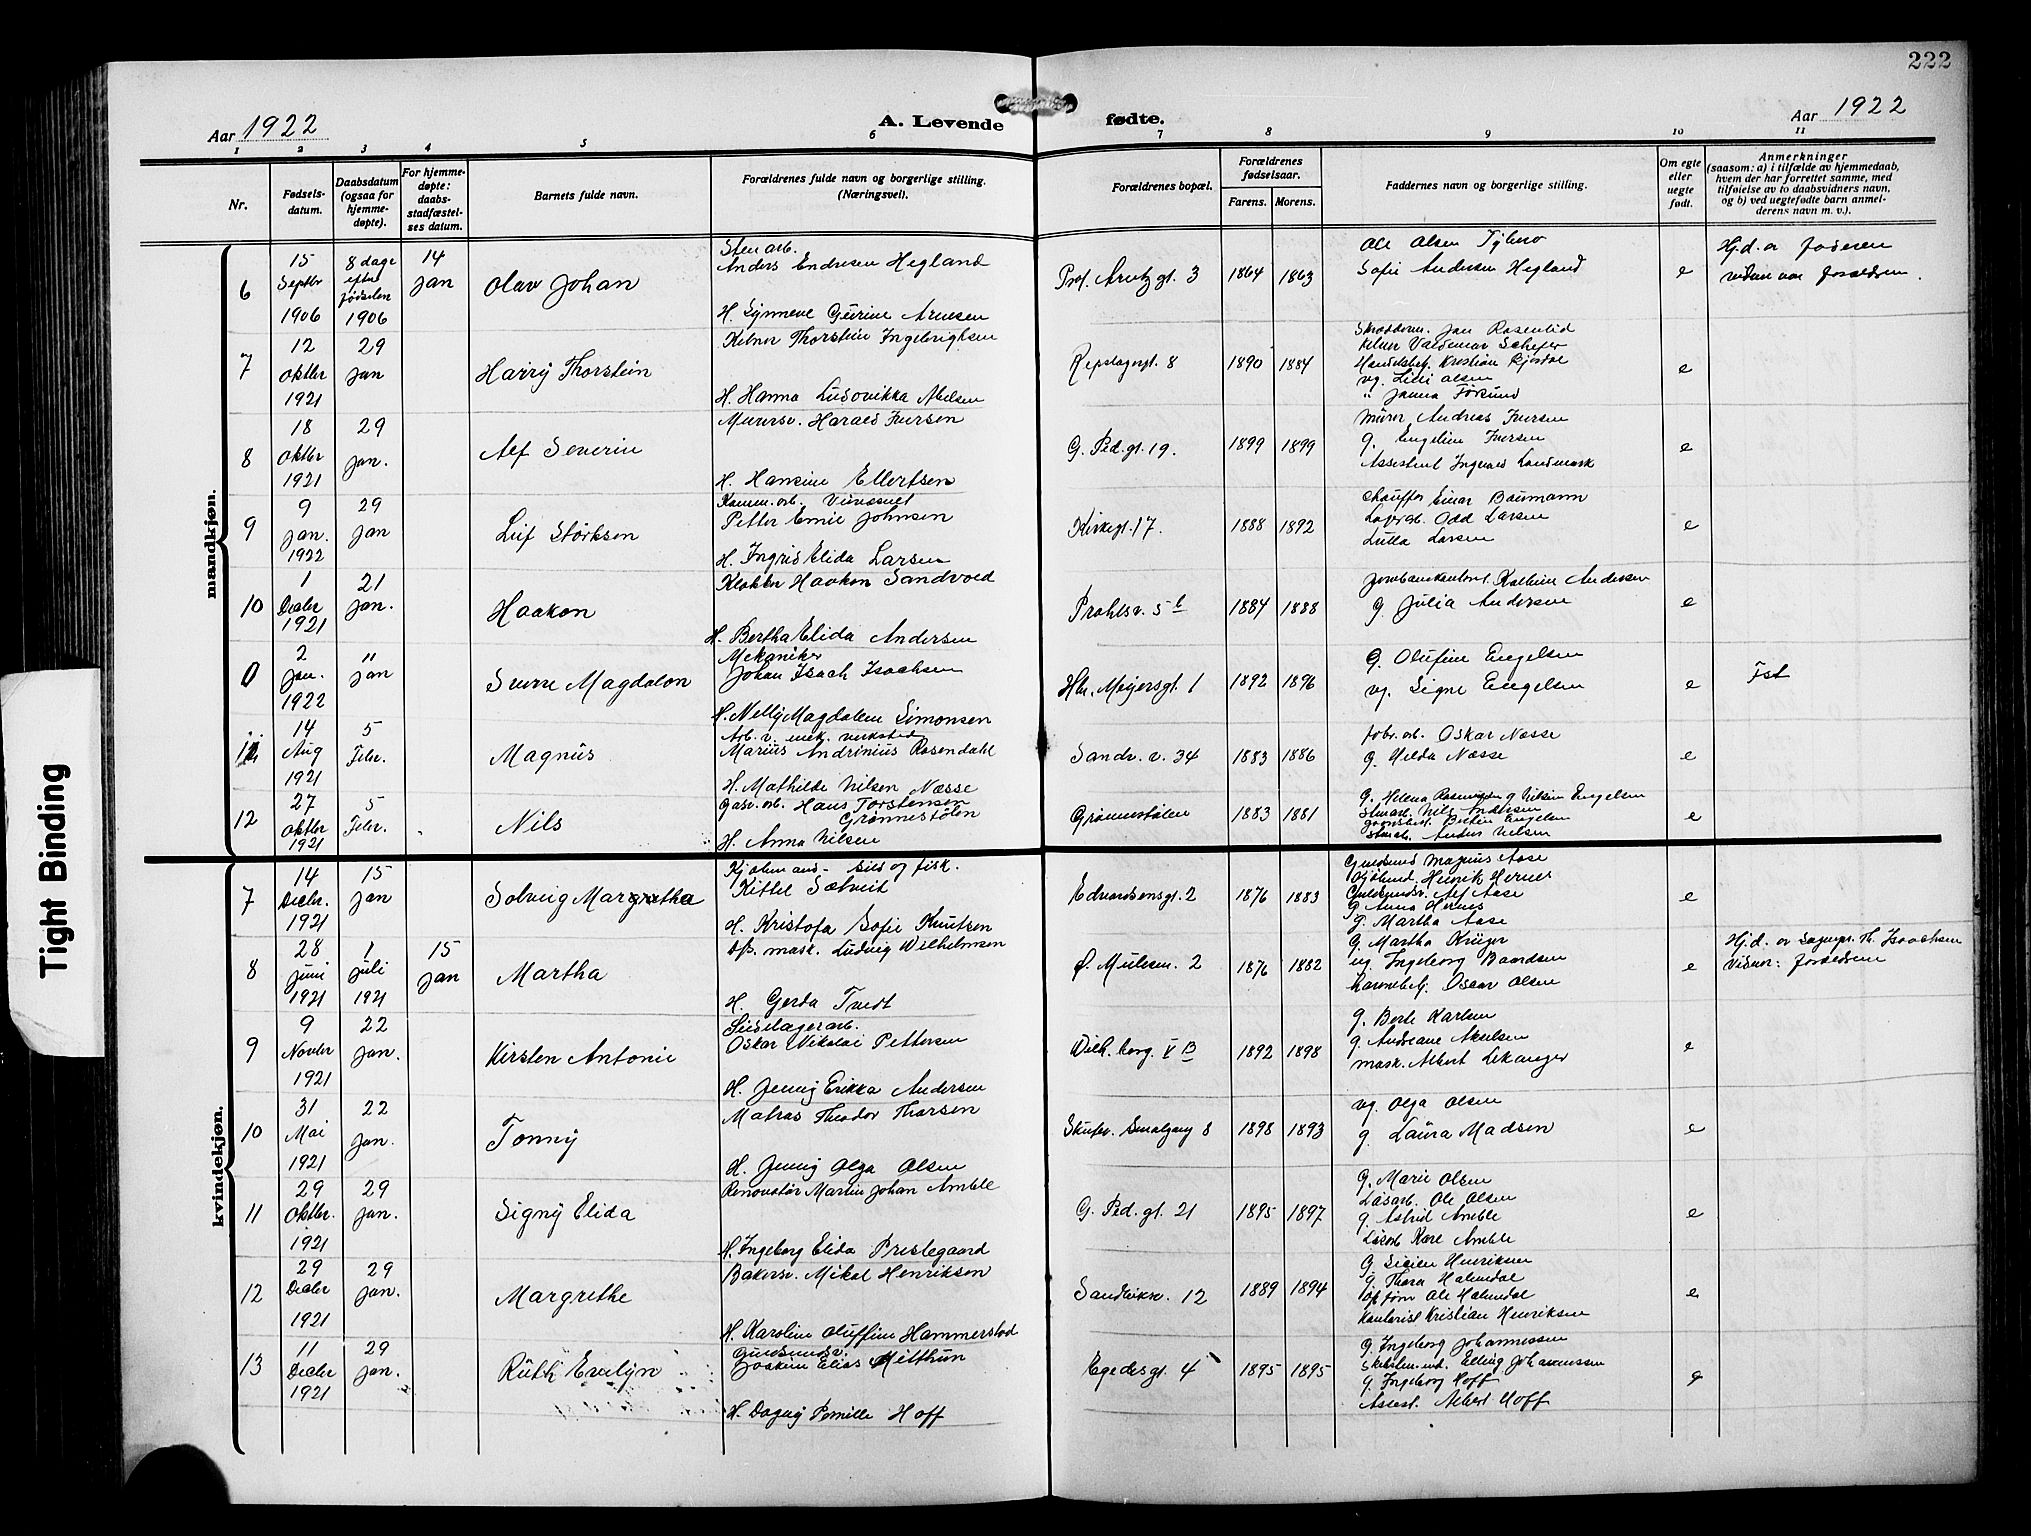 222
Aar 1922
A. Levende fødte.
Aar 1922
1 2 3 4 5 6 7 8 9 10 11
Nr.
Fødsels-datum.
Daabsdatum (ogsaa for hjemme-døpte).
For hjemme-døpte: daabs-stadfæstel-ses datum.
Barnets fulde navn.
Forældrenes fulde navn og borgerlige stilling. (Næringsvei).
Forældrenes bopæl.
Forældrenes fødselsaar.
Farens. Morens.
Faddernes navn og borgerlige stilling.
Om egte eller uegte født.
Anmerkninger (saasom: a) i tilfælde av hjemmedaab, hvem der har forrettet samme, med tilføielse av to daabsvidners navn, og b) ved uegtefødte barn anmel-derens navn m. v.).
mandkjøn.
6 15 Septbr 1906 8 dage efter fødselen 1906 14 Jan Olav Johan
Sten arb. Anders Endresen Hegland
H. Synneve Gurine Arnesen
Prof. Arentz gt. 3 1864 1863
Ole Olsen
Sofie Andersen Hegland
e
Hj.d. av
7 12 Oktbr 1921 29 Jan Harry Thorstein
Kelner Thorstein Ingebrigtsen
H. Hanna Ludovikka Nielsen
Repslagergt. 8 1890 1884
Jan Rosenlid
Valdemar
Kristian
vg. Lilli Olsen
e
8 18 Oktbr 1921 29 Jan. Alf Severin
Murersv. Harald Iversen
H. Hansine Ellertsen
G. Ped. gt. 19. 1899 1899
Murer Andreas Iversen
g. Engeline Iversen
Assistent Ingvald Landmark
e
9 9 Jan. 1922 29 Jan Leif Størksen
Petter Emil Johnsen
H. Ingrid Elida Larsen
Kirkegt. 17. 1888 1892
Chauffør Einar Baumann
Odd Larsen
Lulla Larsen
e
10 1 Decbr 1921 21 Jan. Haakon
Klokker Haakon Sandvold
H. Bertha Elida Andersen
Prahlsv. 5 b 1884 1888
Kathrine Andersen
g. Julia Andersen
e
0 2 Jan. 1922 11 Jan Sverre Magdalon
Mekaniker Johan Isach Isachsen
H. Nelly Magdalene Simonsen
Hr. Meyersgt. 1 1892 1896
G. Olufine Engelsen
vg. Signe Engelsen
e
Fst
11 14 Aug 1921 5 Febr. Magnus
Arb. v. mek. verksted Marius Andrinius Rosendahl
H. Mathilde Nilsen Næsse
Sandv. v. 34 1883 1886
fabr. arb. Oskar Næsse
g. Hilda Næsse
e
12 27 Oktbr 1921 5 Febr. Nils
Gasv. arb. Hans Torstensen Grønnestølen
H. Anna Nilsen
Grønnestølen 1883 1881
Nils Andersen
Anders Nilsen
e
kvindekjøn.
7 14 Decbr. 1921 15 Jan Solveig Margretha
Kjøbmand - sild og fisk. Kittel Sætveit
H. Kristofa Sofie Knutsen
Edvardsensgt. 2 1876 1883
Guldsmed Magnus Aase
Henrik Hernes
Guldsmedsv. Alf Aase
g. Anna Hernes
g. Martha Aase
e
8 28 Juni 1921 1 Juli 1921 15 Jan Martha
mask. Ludvig Wilhelmsen
H. Gerda Tvedt
Ø. Mulesm. 2 1876 1882
g. Martha Krüger
ug. Ingeborg Baardsen
Oscar Olsen
e
Hj.d. av Th. Isachsen
Vidner: forældrene
9 9 Novbr 1921 22 Jan. Kirsten Antonie
Sildelagerarb. Oskar Nikolai Pettersen
H. Jenny Erikka Andersen
Wilh. borg. V B 1892 1898
g. Berte Karlsen
g. Andreane Akselsen
mask. Albert Lekanger
e
10 31 Mai 1921 22 Jan. Tonny
Matros Theodor Thorsen
H. Jenny Olga Olsen
Skutev. Smalgang 8 1898 1893
vg. Olga Olsen
g. Laura Madsen
e
11 29 Oktbr. 1921 29 Jan. Signy Elida
Renovatør Martin Johan Amble
H. Ingeborg Elida Prestegaard
G. Ped. gt. 21 1895 1897
G. Marie Olsen
Løsarb. Ole Olsen
g. Astrid Amble
Løsarb Kåre Amble
e
12 29 Decbr 1921 29 Jan. Margrethe
Bakersv. Mikal Henriksen
H. Karoline Oluffine Hammerstad
Sandviksv. 12 1889 1894
g. Thora Halmdal
Ole Halmdal
Kontorist Kristian Henriksen
e
13 11 Decbr 1921 29 Jan. Ruth Evelyn
Guldsmedsv. Joakim Elias Mitthun
H. Dagny Pernille Hoff
Egedesgt. 4 1895 1895
G. Ingeborg Johannessen
Elling Johannessen
g. Ingeborg Hoff
Assist. Albert Hoff
e
Tight Binding